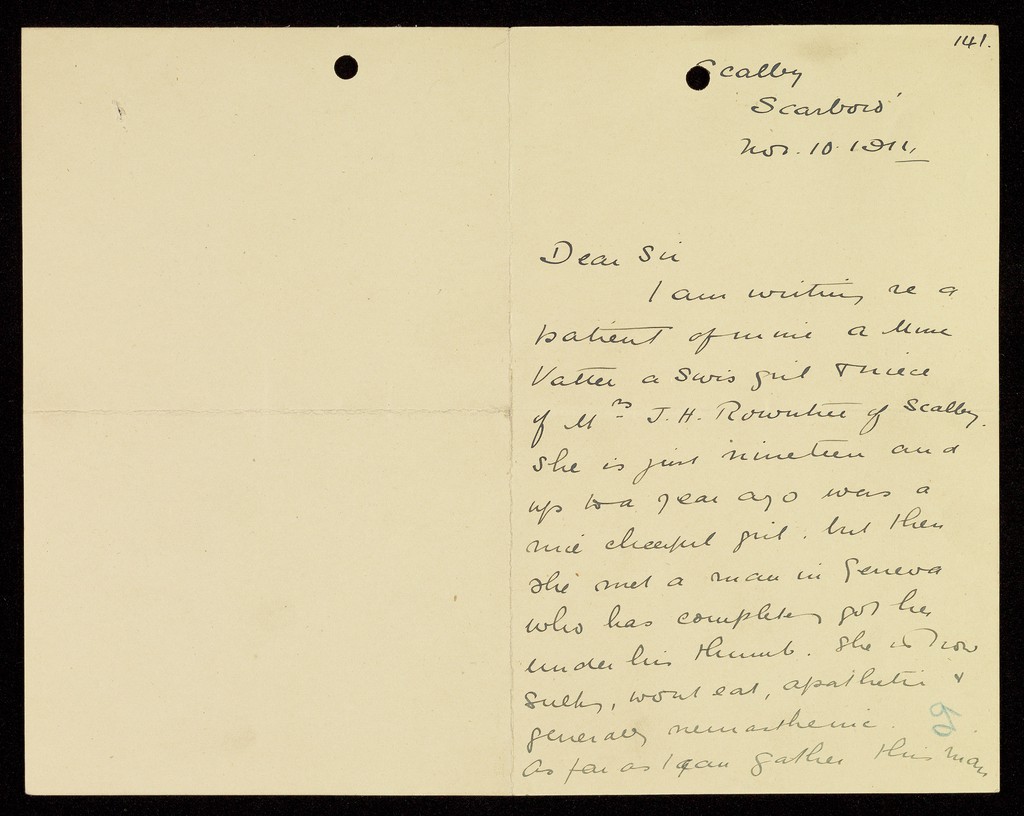 141.
Scalby
Scarboro'
Nov. 10. 1911.
Dear Sir
I am writing re a
patient of mine a Mme
Vatter a Swis girl & niece
of Mrs J. H. Rowntree of Scalby.
She is just nineteen and
up to a year ago was a
nice cheerful girl. but then
she met a man in Geneva
who has completely got her
under his thumb. She is now
sulky, wont eat, apathetic &
generally neurasthenic.
As far as I can gather this man